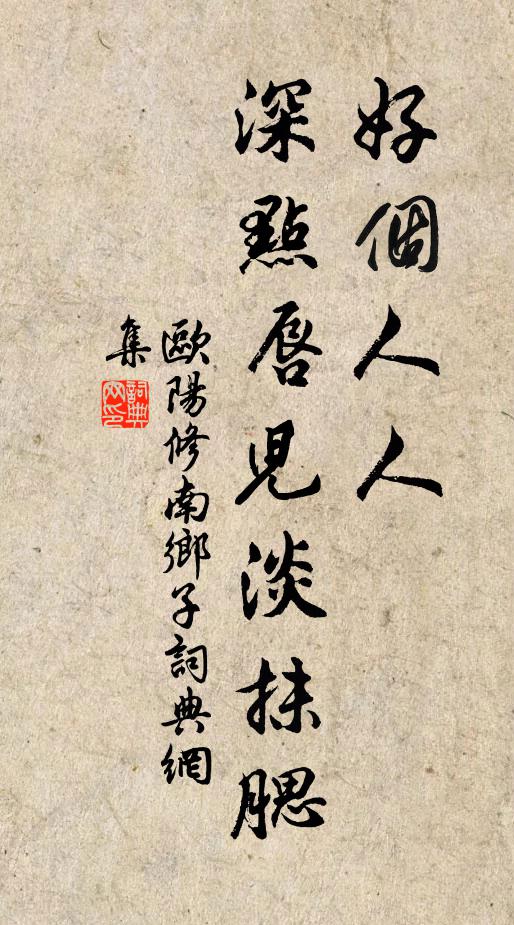 好個人人
深點唇兒淡抹腮
歐陽修南鄉子詞典網
集
詞典網印